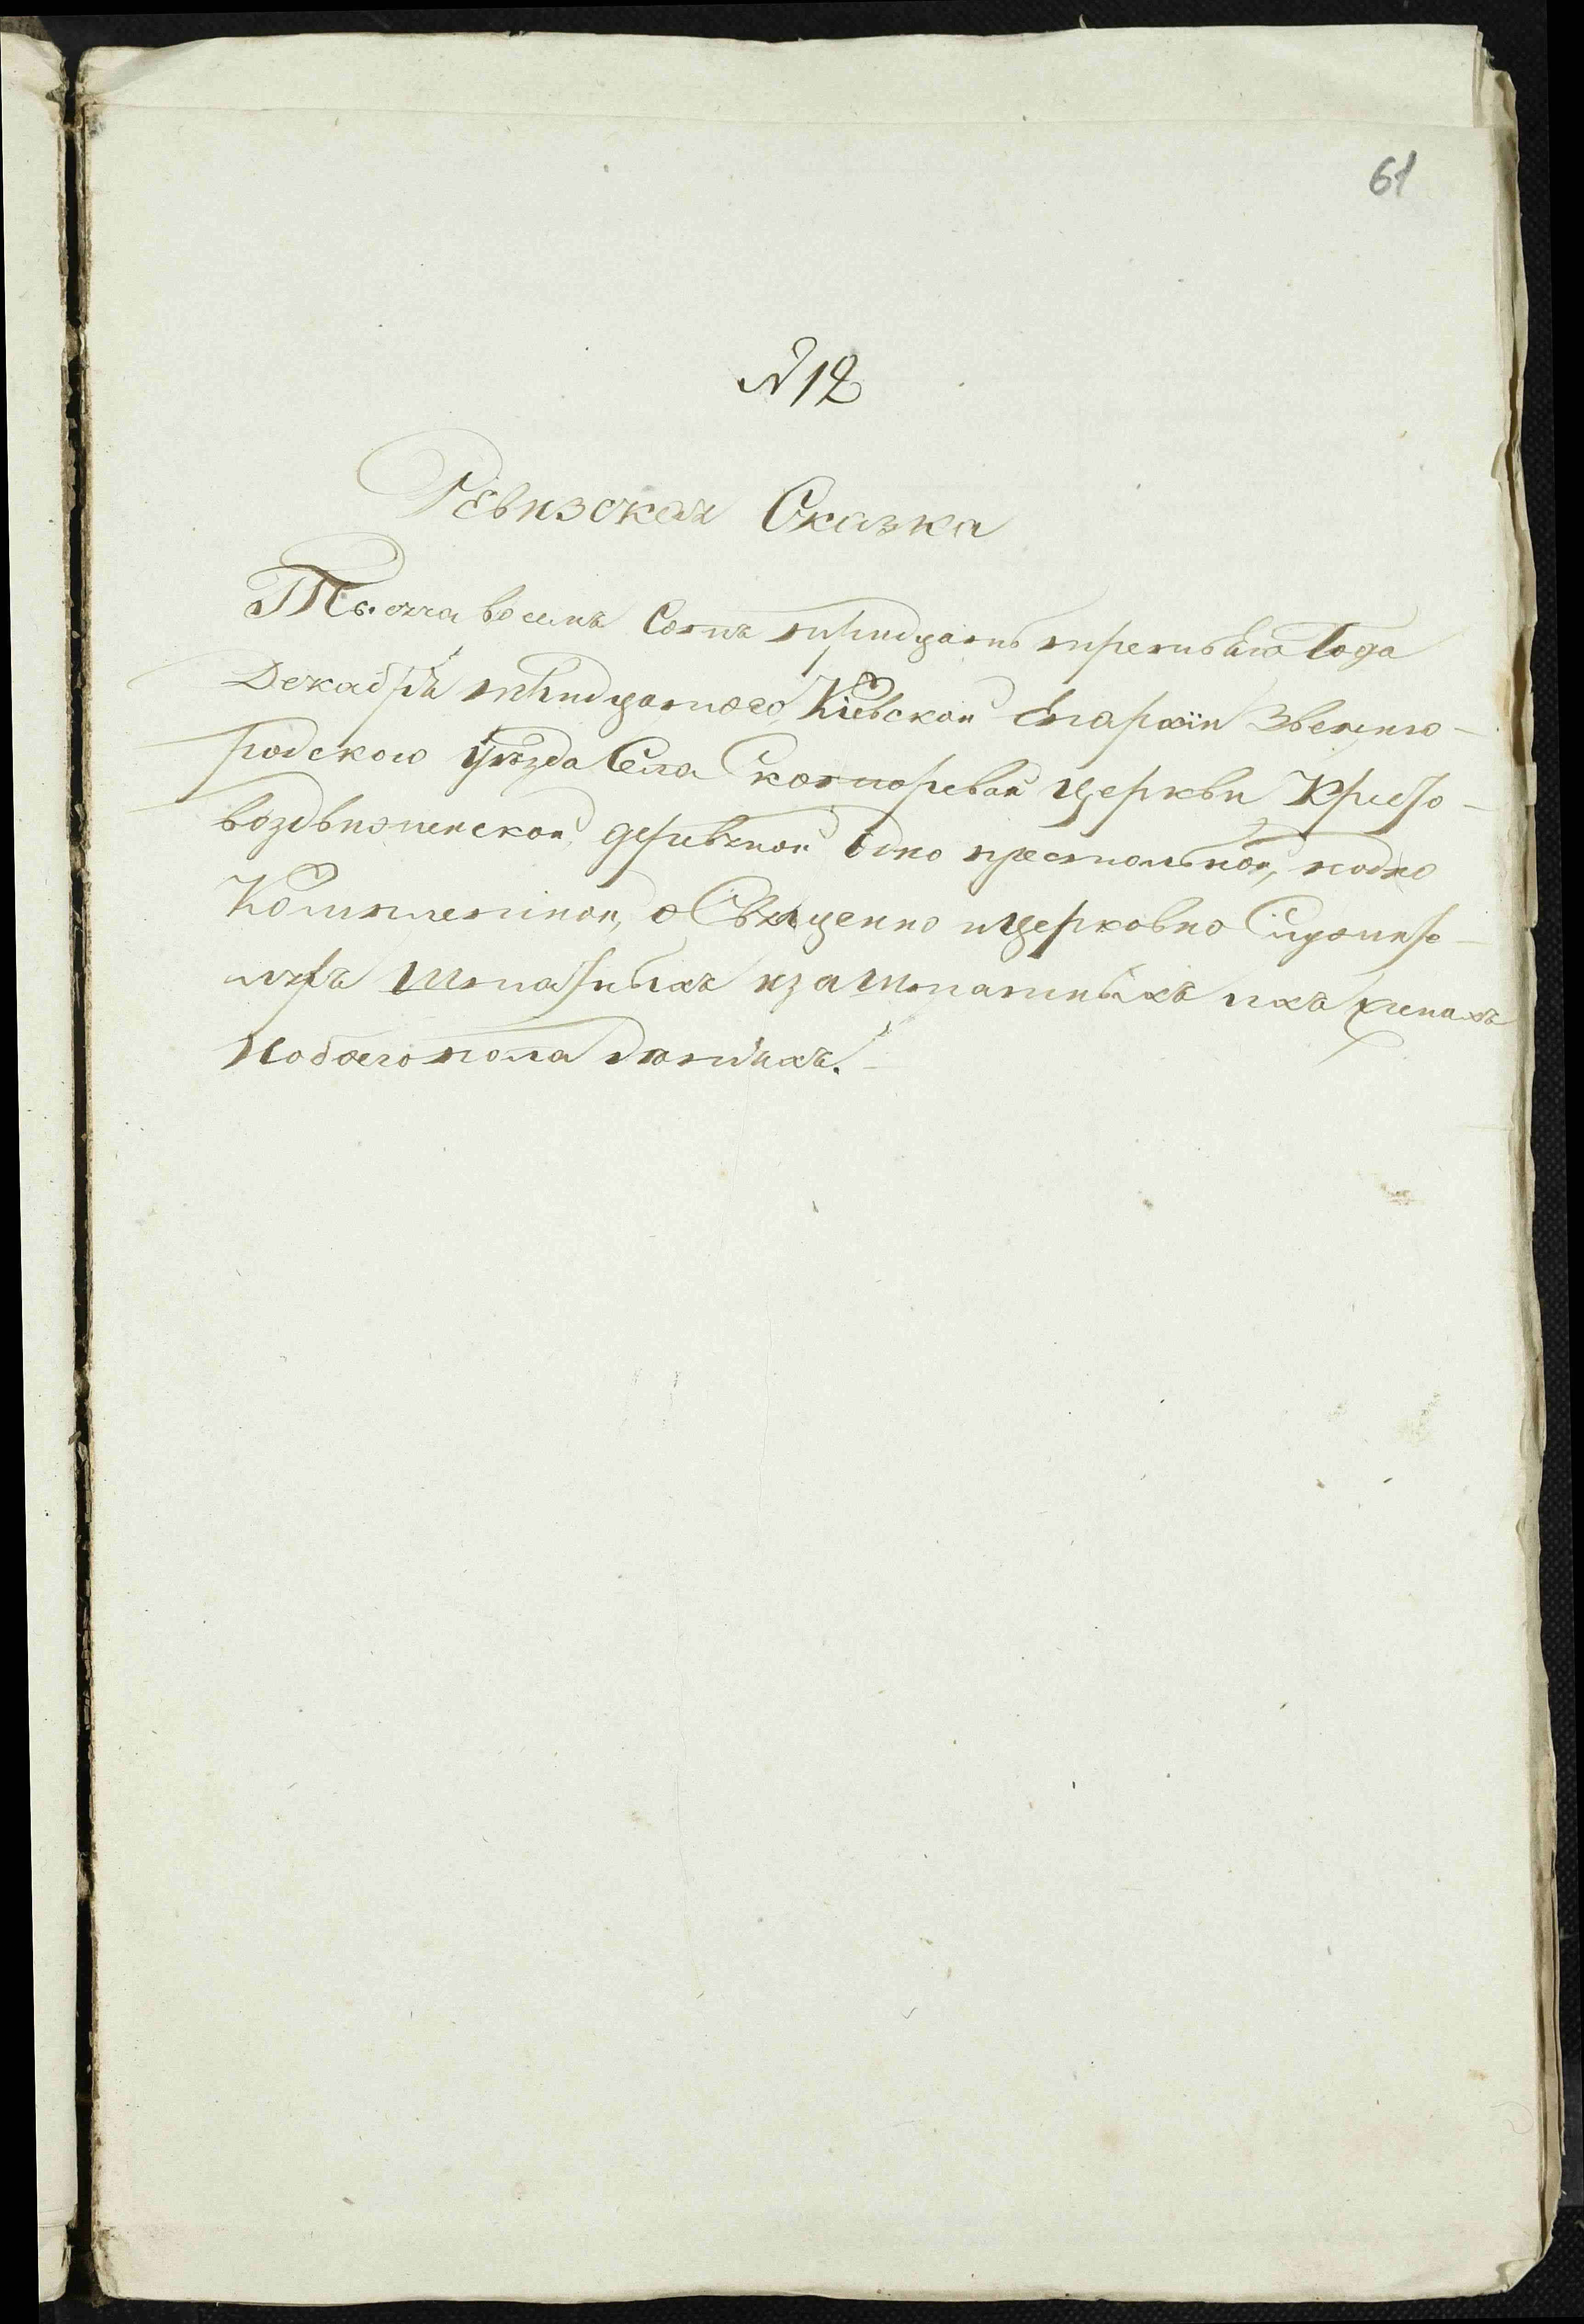 61
№ 12
Ревизская Сказка
Тысяча восемъ Сотъ тридцать третьяго Года
Декабря тридцатого, Кіевской Епархіи Звениго-
родского уѣзда Села Скоморевки Церкви Кресто-
воздвиженской, деревяной Одно престольной, подно
Комплектной, о Священно и Церковно Служите-
ляхъ Штатныхъ и за Штатныхъ и ихъ женахъ
и обоего пола дѣтяхъ.